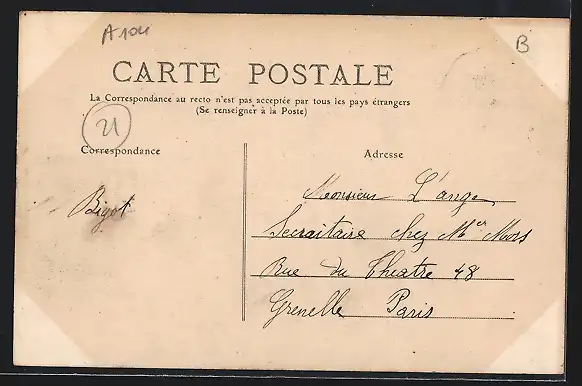 A104
B
CARTE POSTALE
La Correspondance au recto n'est pas acceptée par tous les pays étrangers
(Se renseigner à la Poste)
21
Correspondance
Adresse
Bigot
Monsieur L'ange
Secraitaire chez Mr Mors
Rue du Theatre 48
Grenelle Paris